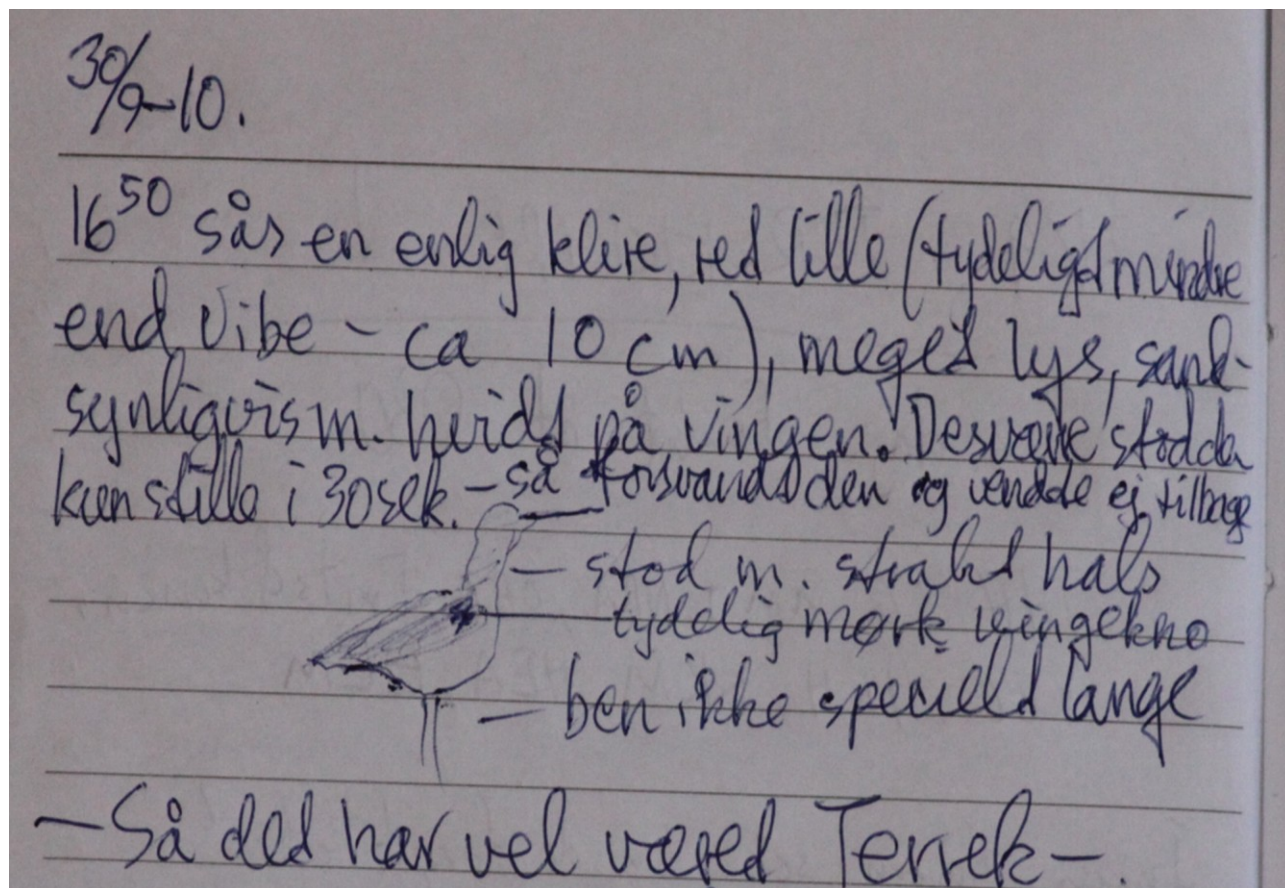 30/9-10.
16 50 sås en enlig klire, ret lille (tydeligt mindre
end vibe - ca 10 cm), meget lys, sand-
synligvis m. hvidt på vingen. Desværre stod den
kun stille i 30 sek. - så forsvandt den og vendte ej tilbage
- stod m. strakt hals
tydelig mørk vingekno
- ben ikke specielt lange
- Så det har vel været Terrek -.